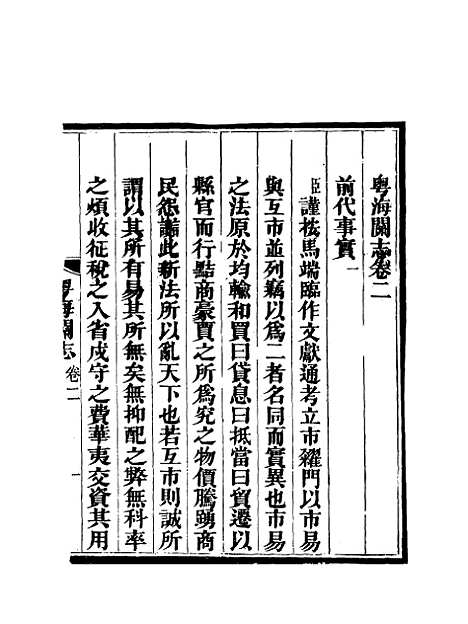 粵海關志卷二
前代事實一
臣謹按馬端臨作文獻通考立市糴門以市易
與互市並列竊以為二者名同而實異也市易
之法原於均輸和買曰貸息曰抵當曰貿遷以
縣官而行黠商豪賈之所為究之物價騰踴商
民怨讟此新法所以亂天下也若互市則誠所
謂以其所有易其所無矣無抑配之弊無科率
之煩收征稅之入省戍守之費華夷交資其用
粵海關志 卷二 一